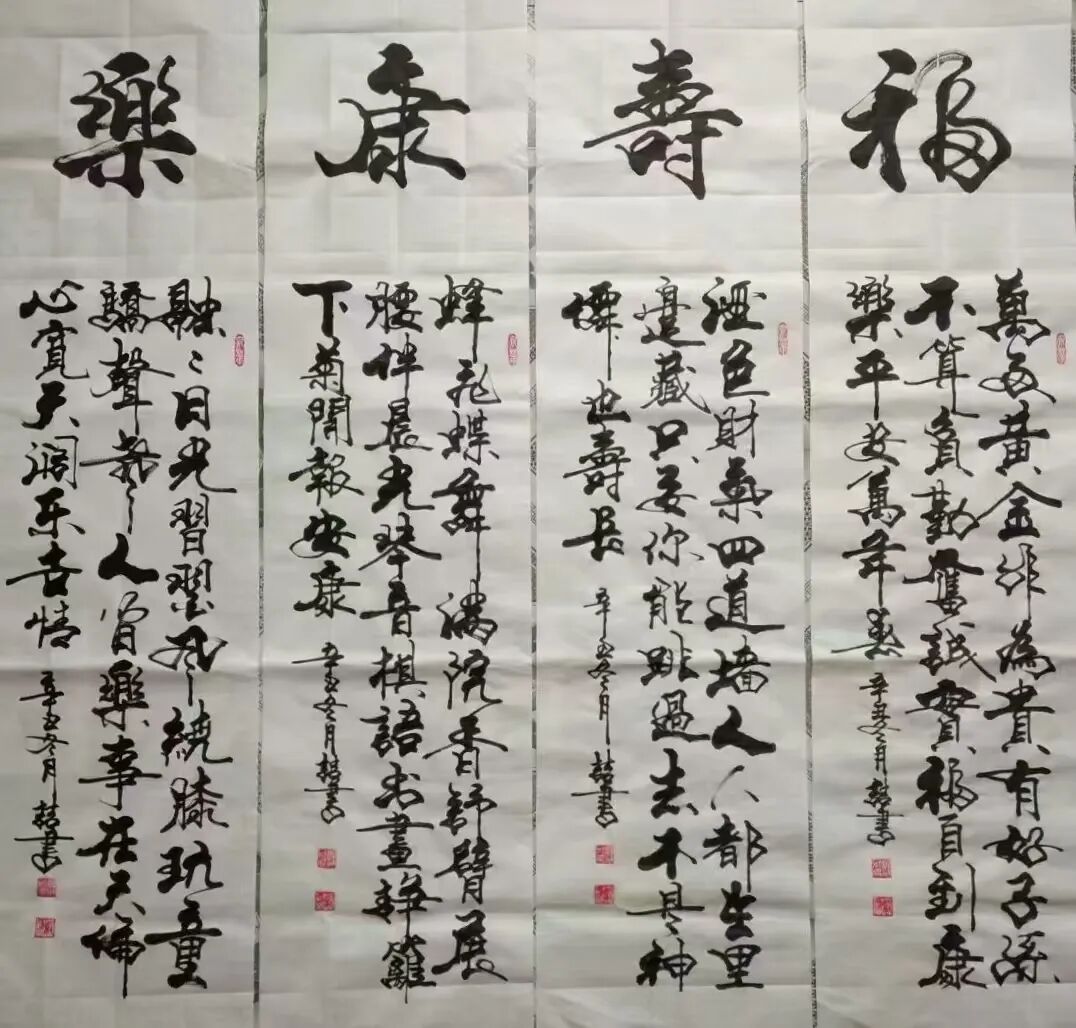 福
萬両黃金非為貴有好子孫
不算貧勤奮誠實福自到康
樂平安萬年春
辛丑冬月喆書
壽
酒色財氣四道墙人人都在里
邊藏只要你能跳過去不是神
僊也壽長
辛丑冬月喆書
康
蜂飛蝶舞滿院香舒臂展
腰伴晨光琴音棋語书畫靜籬
下菊開報安康
辛丑冬月喆書
樂
融〻日光習習風繞膝玩童
驕聲人樂事在天倫
心寬天濶乐吉情
辛丑冬月喆書